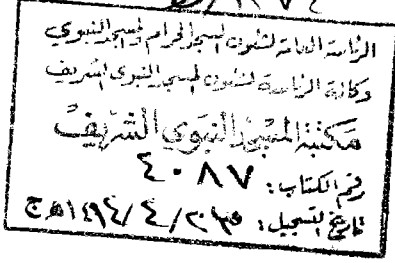 الرئاسة العامة لشئون المسجد الحرام والمسجد النبوي
وكالة الرئاسة لشئون المسجد النبوي الشريف
مكتبة المسجد النبوي الشريف
رقم الكتاب: ٤٠٨٧
تاريخ التسجيل: